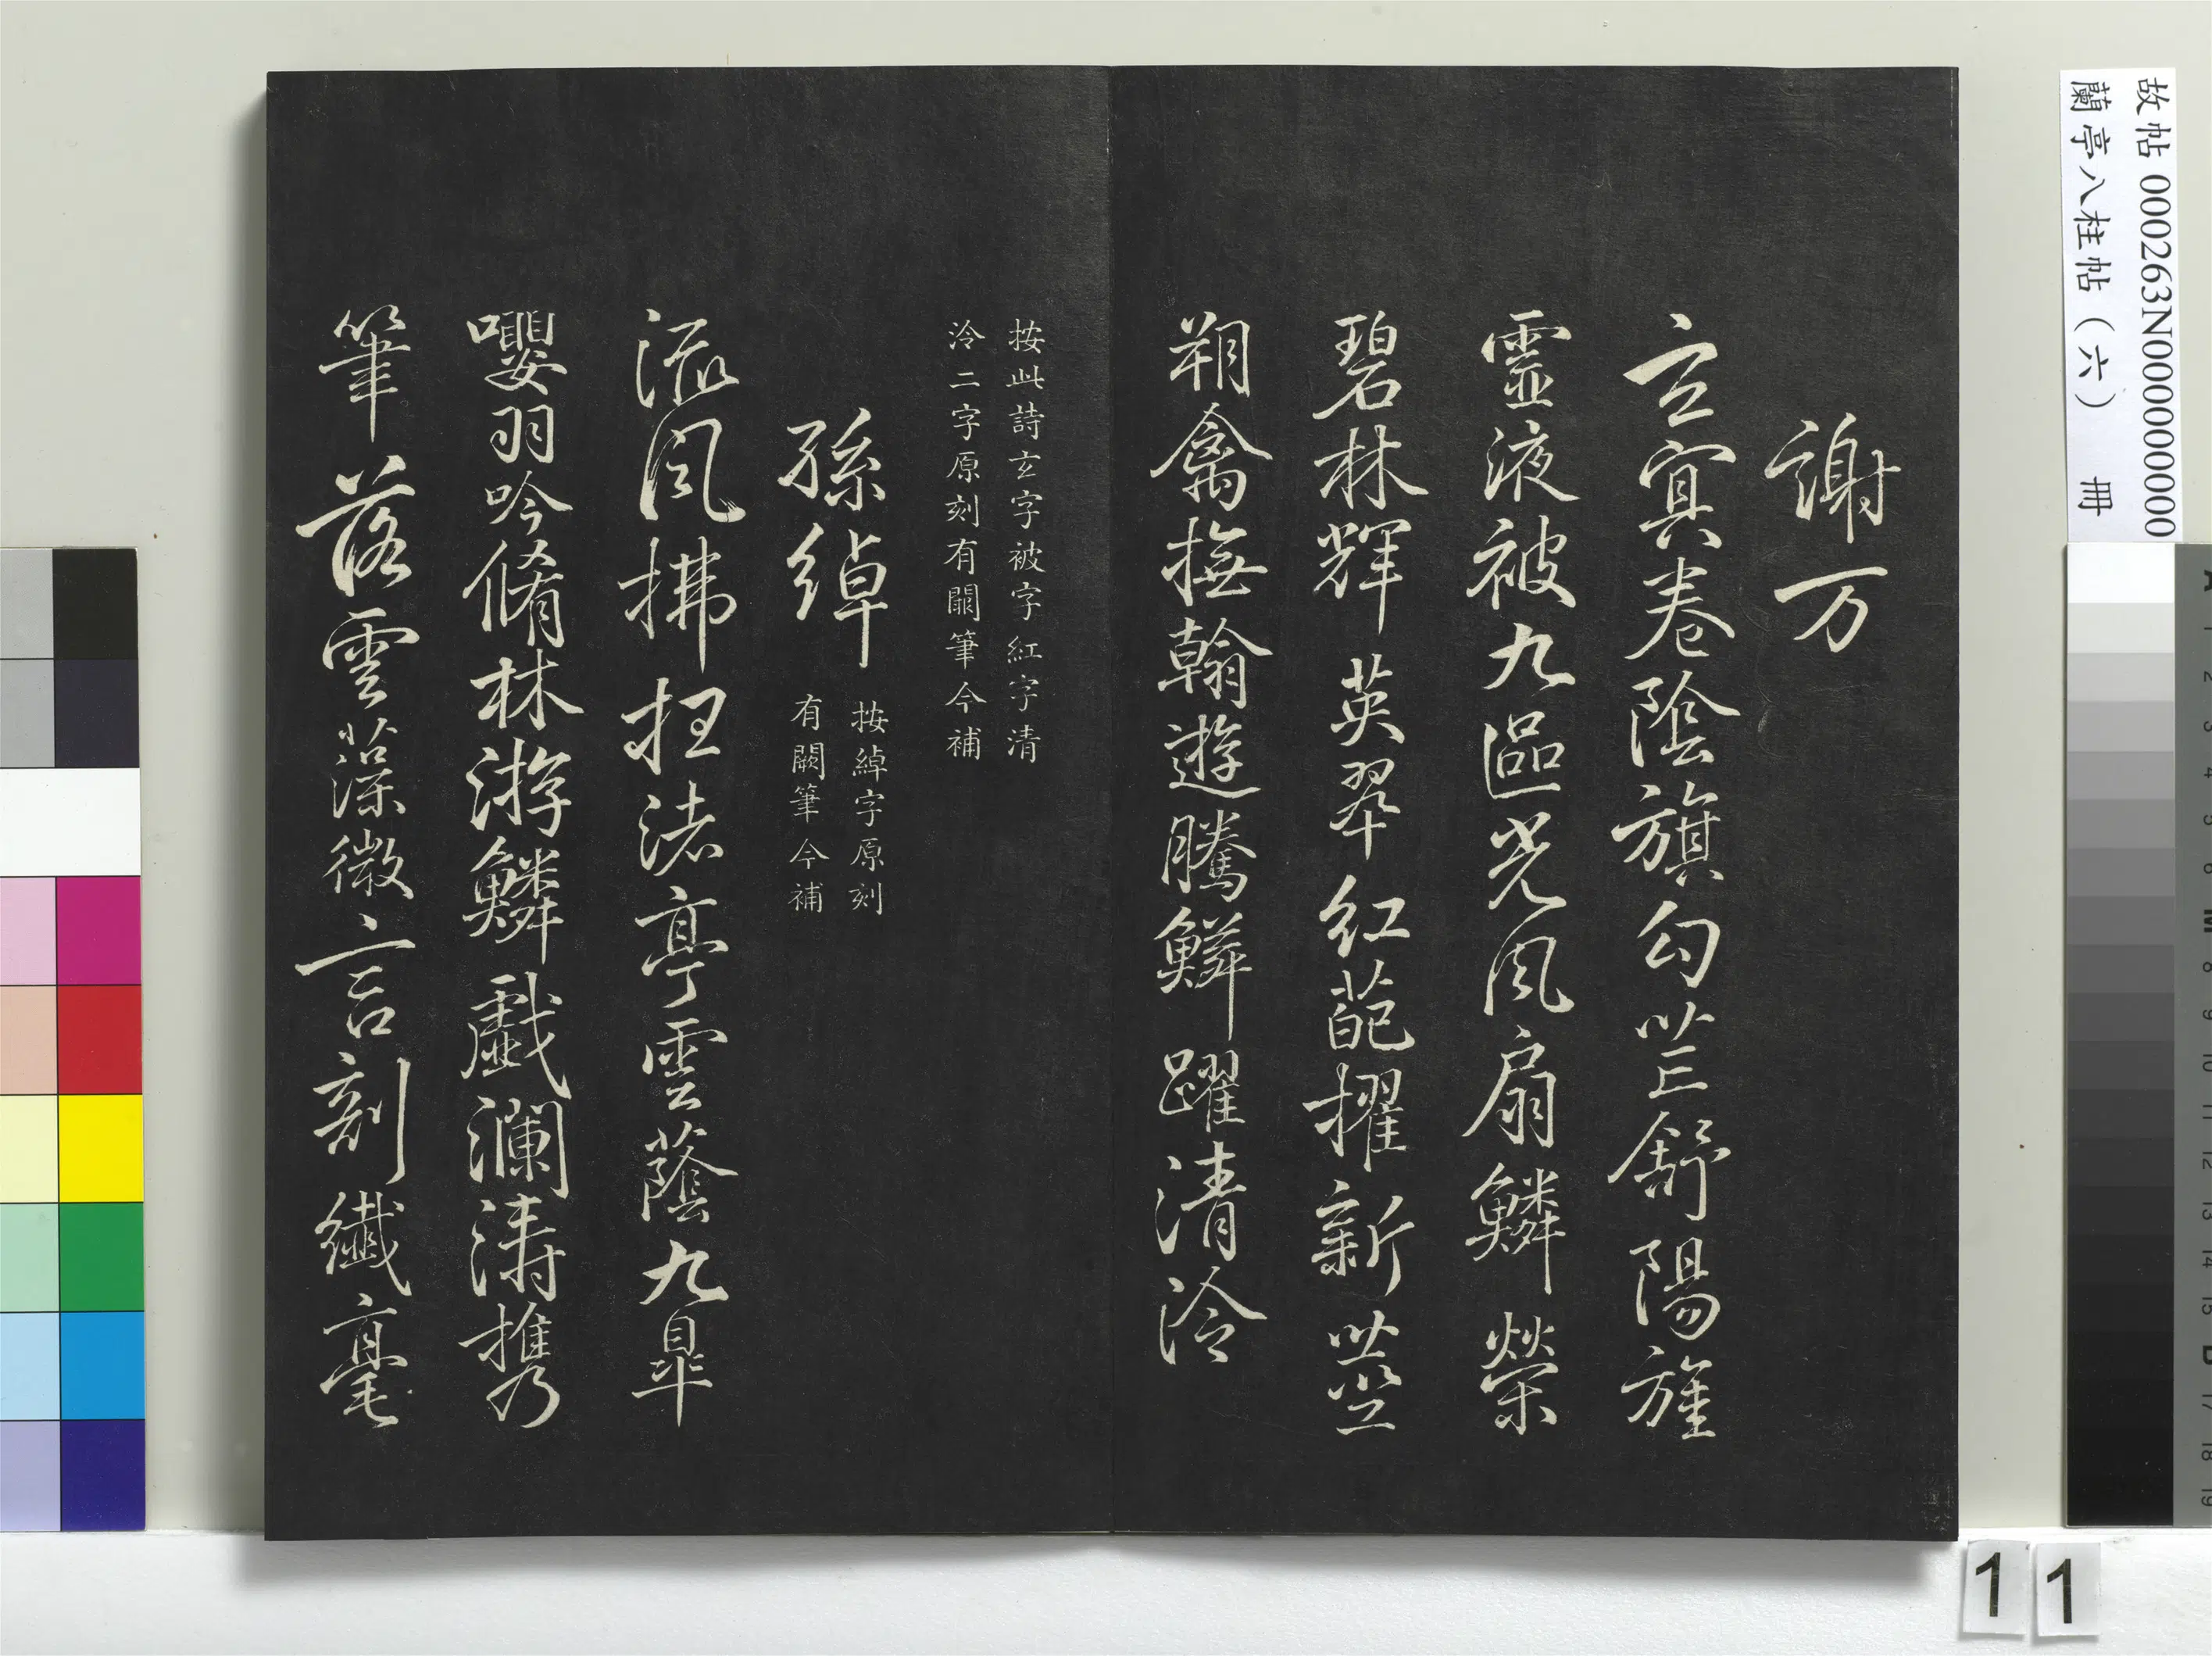 故帖 000263N000000000
蘭亭八柱帖（六） 冊
謝万
玄冥卷陰旗勾芒舒陽旌
靈液被九區光風扇鱗榮
碧林輝英翠紅葩擢新莖
翔禽撫翰遊騰鱗躍清泠
按此詩玄字被字紅字清
泠二字原刻有闕筆今補
孫綽
按綽字原刻
有闕筆今補
流風拂枉渚亭雲蔭九皐
嚶羽吟脩林游鱗戲瀾濤攜
筆落雲藻微言剖纖毫
11